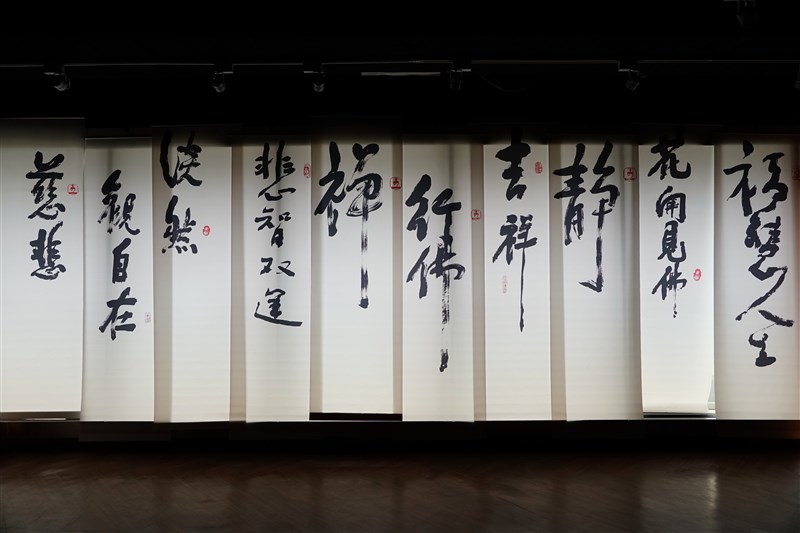 慈悲
觀自在
淡然
悲智双運
禪
行佛
吉祥
靜
花開見佛
福慧人生